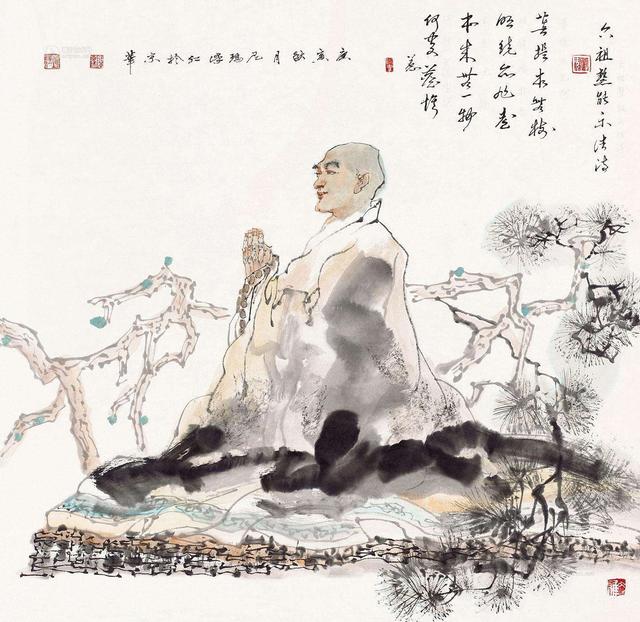 六祖慧能示法诗
菩提本無樹
明镜亦非臺
本来無一物
何處惹塵埃
庚寅秋月尼瑪澤仁於京華